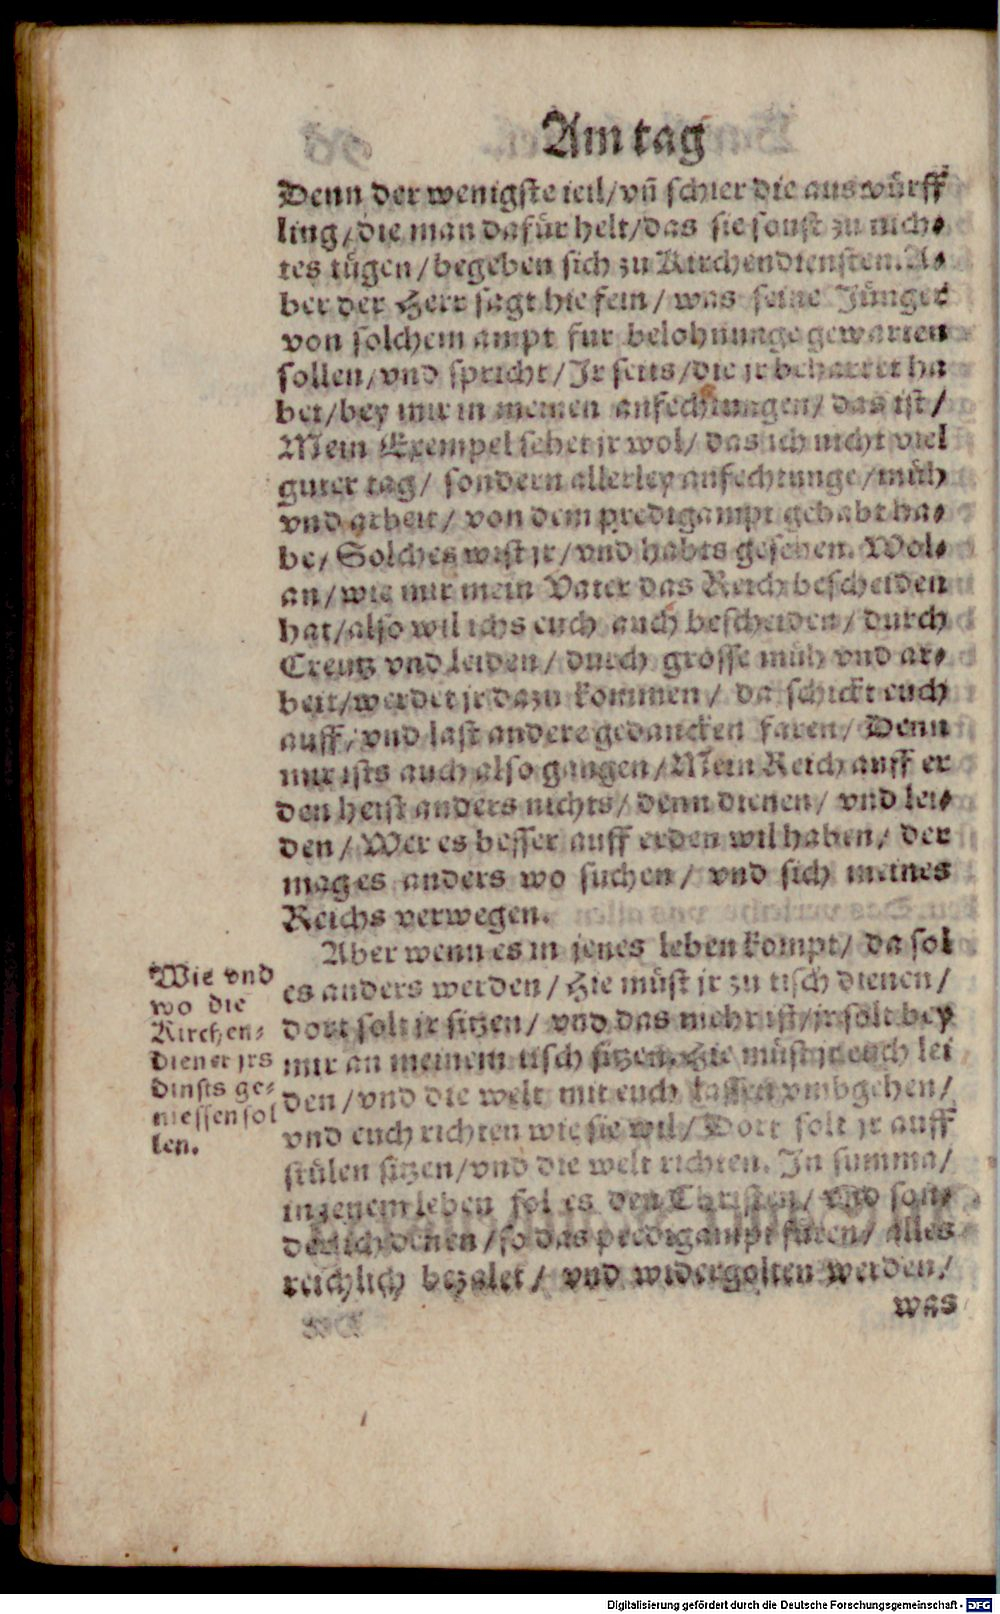 Am tag
Denn der wenigste teil/ vn̄ schier die auswürff
ling/ die man dafür helt/ das sie sonst zu nich-
tes tügen/ begeben sich zu Kirchendiensten. A-
ber der Herr sagt hie fein/ was seine Jünger
von solchem ampt fur belohnunge gewarten
sollen/ vnd spricht/ Jr seits/ die jr beharret ha
bet/ bey mir in meinen anfechtungen/ das ist/
Mein Exempel sehet jr wol/ das ich nicht viel
guter tag/ sondern allerley anfechtunge/ müh
vnd arbeit/ von dem predigampt gehabt ha-
be/ Solches wist jr/ vnd habts gesehen. Wol-
an/ wie mir mein Vater das Reich bescheiden
hat/ also wil ichs euch auch bescheiden/ durch
Creutz vnd leiden/ durch grosse müh vnd ar-
beit/ werdet jr dazu kommen/ da schickt euch
auff/ vnd last andere gedancken faren/ Denn
mir ists auch also gangen/ Mein Reich auff er
den heist anders nichts/ denn dienen/ vnd lei-
den/ Wer es besser auff erden wil haben/ der
mag es anders wo suchen/ vnd sich meines
Reichs verwegen.
Aber wenn es in jenes leben kompt/ da sol
es anders werden/ Hie müst jr zu tisch dienen/
dort solt jr sitzen/ vnd das mehr ist/ jr solt bey
mir an meinem tisch sitzen. Hie müst jr euch lei
den/ vnd die welt mit euch lassen vmbgehen/
vnd euch richten wie sie wil/ Dort solt jr auff
stülen sitzen/ vnd die welt richten. In summa/
in jenem leben sol es den Christen/ vnd son-
derlich denen/ so das predigampt füren/ alles
reichlich bezalet/ vnd widergolten werden/
was
Wie vnd
wo die
Kirchen-
diener jrs
dinsts ge-
niessen sol
len.
Digitalisierung gefördert durch die Deutsche Forschungsgemeinschaft - DFG